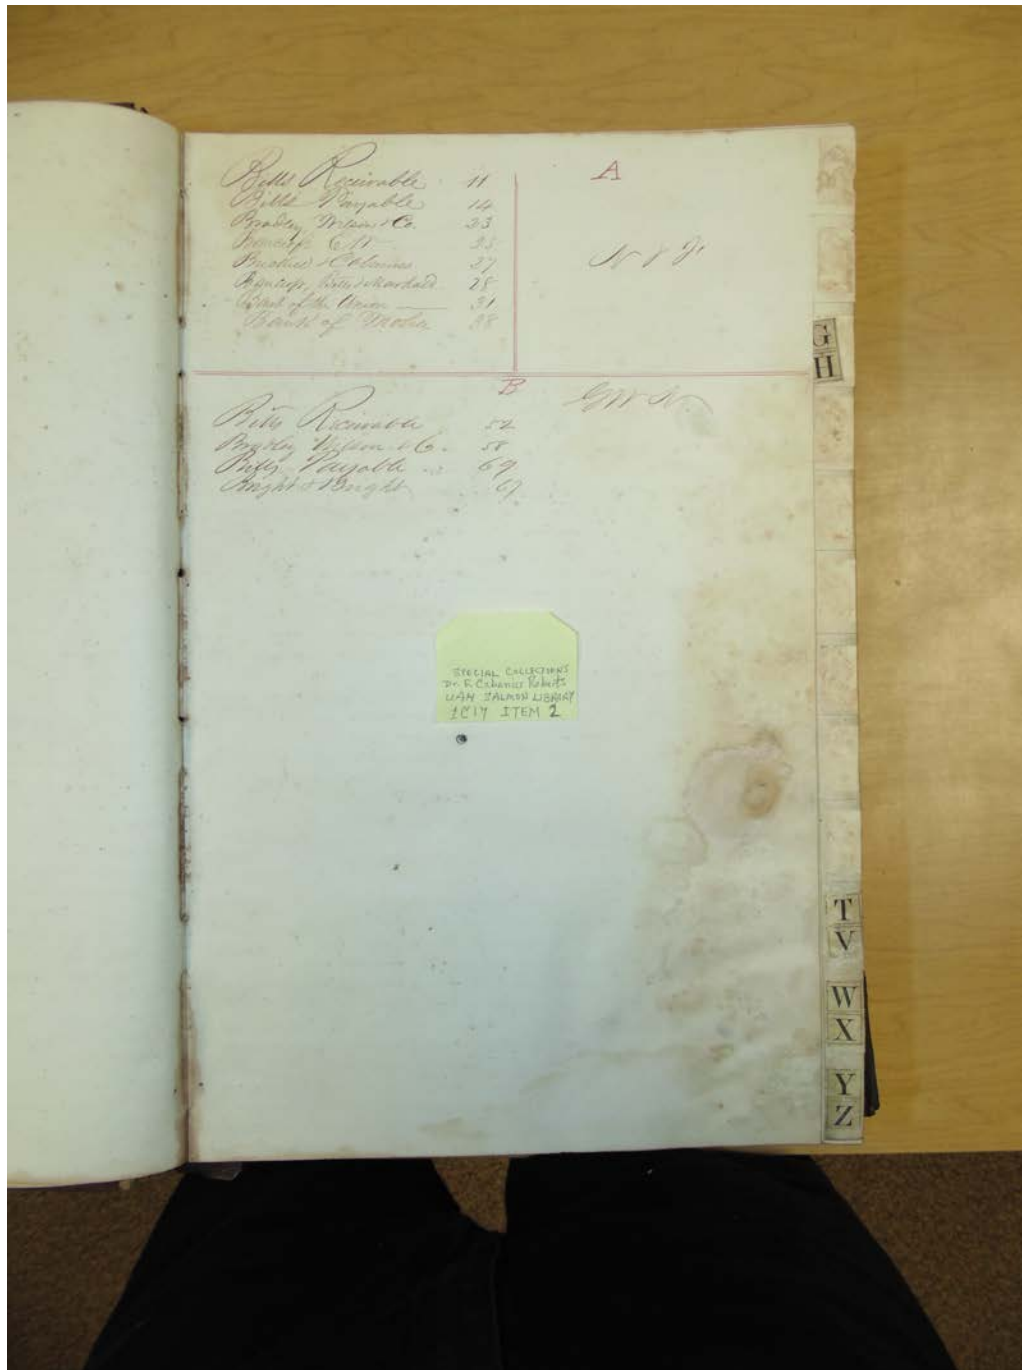 Bills Receivable 11
Bills Payable 14
Bradley, Wilson & Co. 23
Bancroft 25
27
Bancroft, Betts & Marshall 28
Bank of the Union 31
Bank of Mobile 38
A
N & Jr
B
Bills Receivable 52
Bradley Wilson & C. 58
Bills Payable 69
Bright & Bright 67
SPECIAL COLLECTIONS
Dr. F. Cabaniss Roberts
UAH SALMON LIBRARY
ITEM 2
G
H
T
V
W
X
Y
Z